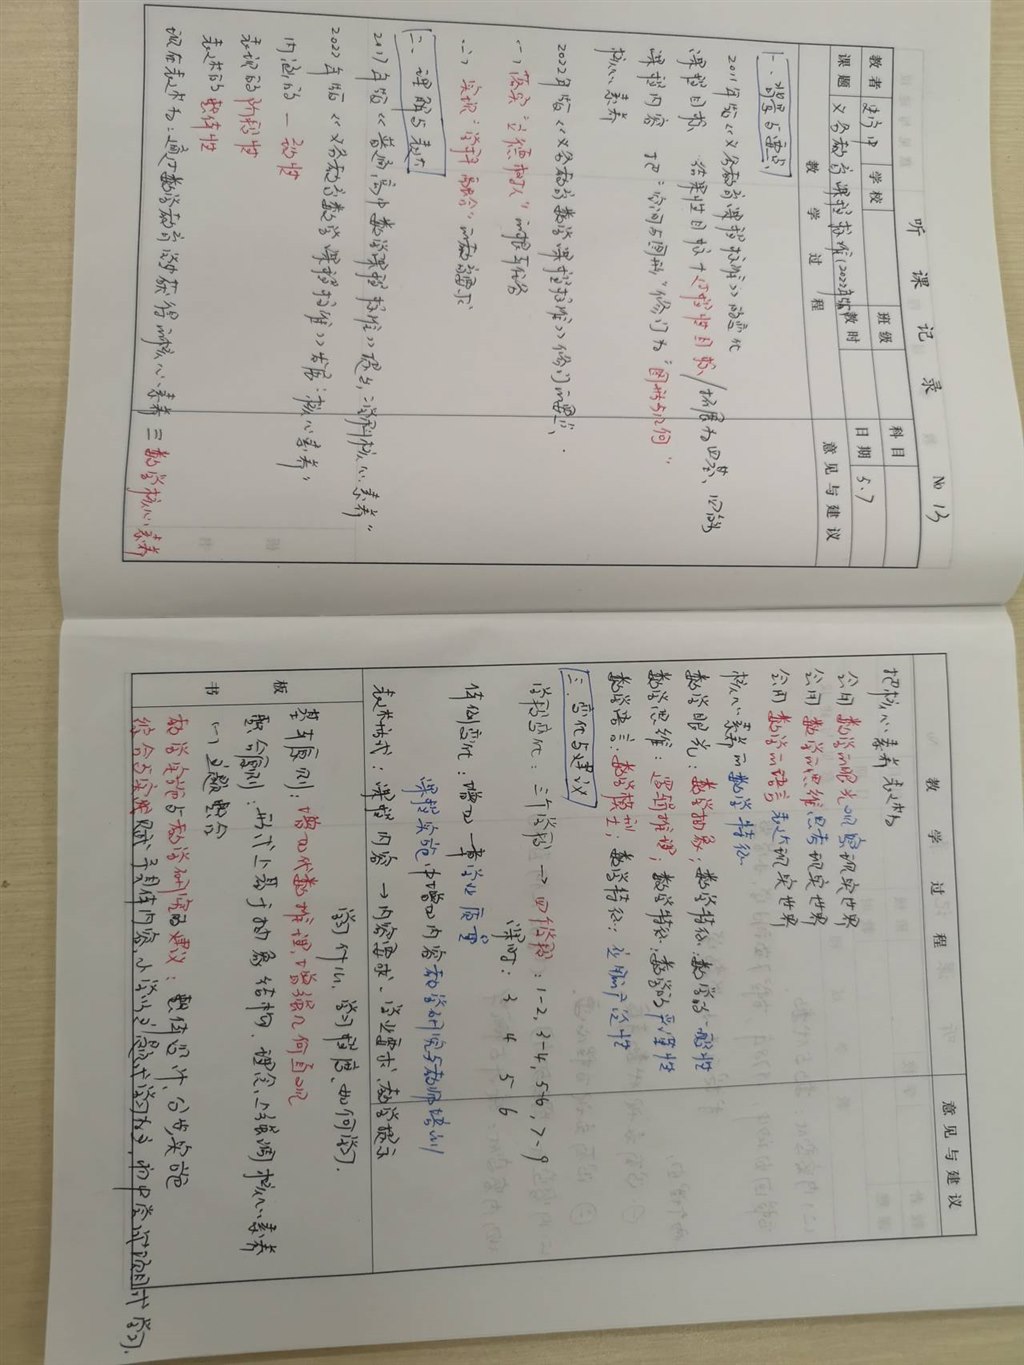 听 课 记 录 No 13
教者 史宁中 学校 班级 科目
课题 义务教育课程标准(2022年版) 教时 日期 5.7
教 学 过 程 意见与建议
一、背景与要点
2011年版《义务教育课程标准》的变化
课程目标 结果性目标+过程性目标/拓展为四基、四能
课程内容 把“空间与图形”修订为“图形与几何”
核心素养
2022年版《义务教育数学课程标准》修订的要点.
(一) 落实“立德树人”的根本任务
(二) 实现“学科融合”的教育要求
二、理解与表达
2017年版《普通高中数学课程标准》提出“学科核心素养”
2022年版《义务教育数学课程标准》发展“核心素养”
内涵的一致性
表现的阶段性
表述的整体性
现在表述为:通过数学教育学生获得的核心素养 = 数学核心素养
教 学 过 程 意见与建议
把核心素养表述为
会用数学的眼光观察现实世界
会用数学的思维思考现实世界
会用数学的语言表达现实世界
核心素养的数学特征
数学眼光:数学抽象;数学特征:数学的一般性
数学思维:逻辑推理;数学特征:数学的严谨性
数学语言:数学模型;数学特征:应用广泛性
三、变化与建议
学段变化:三个学段→四学段:1-2,3-4,5-6,7-9
课时: 3 4 5 6
体例变化:增加一章学业质量
课程实施中增加内容教学研究与教师培训
表述格式:课程内容→内容要求、学业要求、教学提示
学习什么、学习程度、如何学习.
板书
基本原则:增加代数推理,增强几何直观
整合原则:形式上基于抽象结构,理念上强调核心素养
(一) 主题整合
教学实施与教学研究的建议:整体设计,分步实施
综合与实践赋予具体内容,小学以主题式学习为主,初中尝试项目式学习.